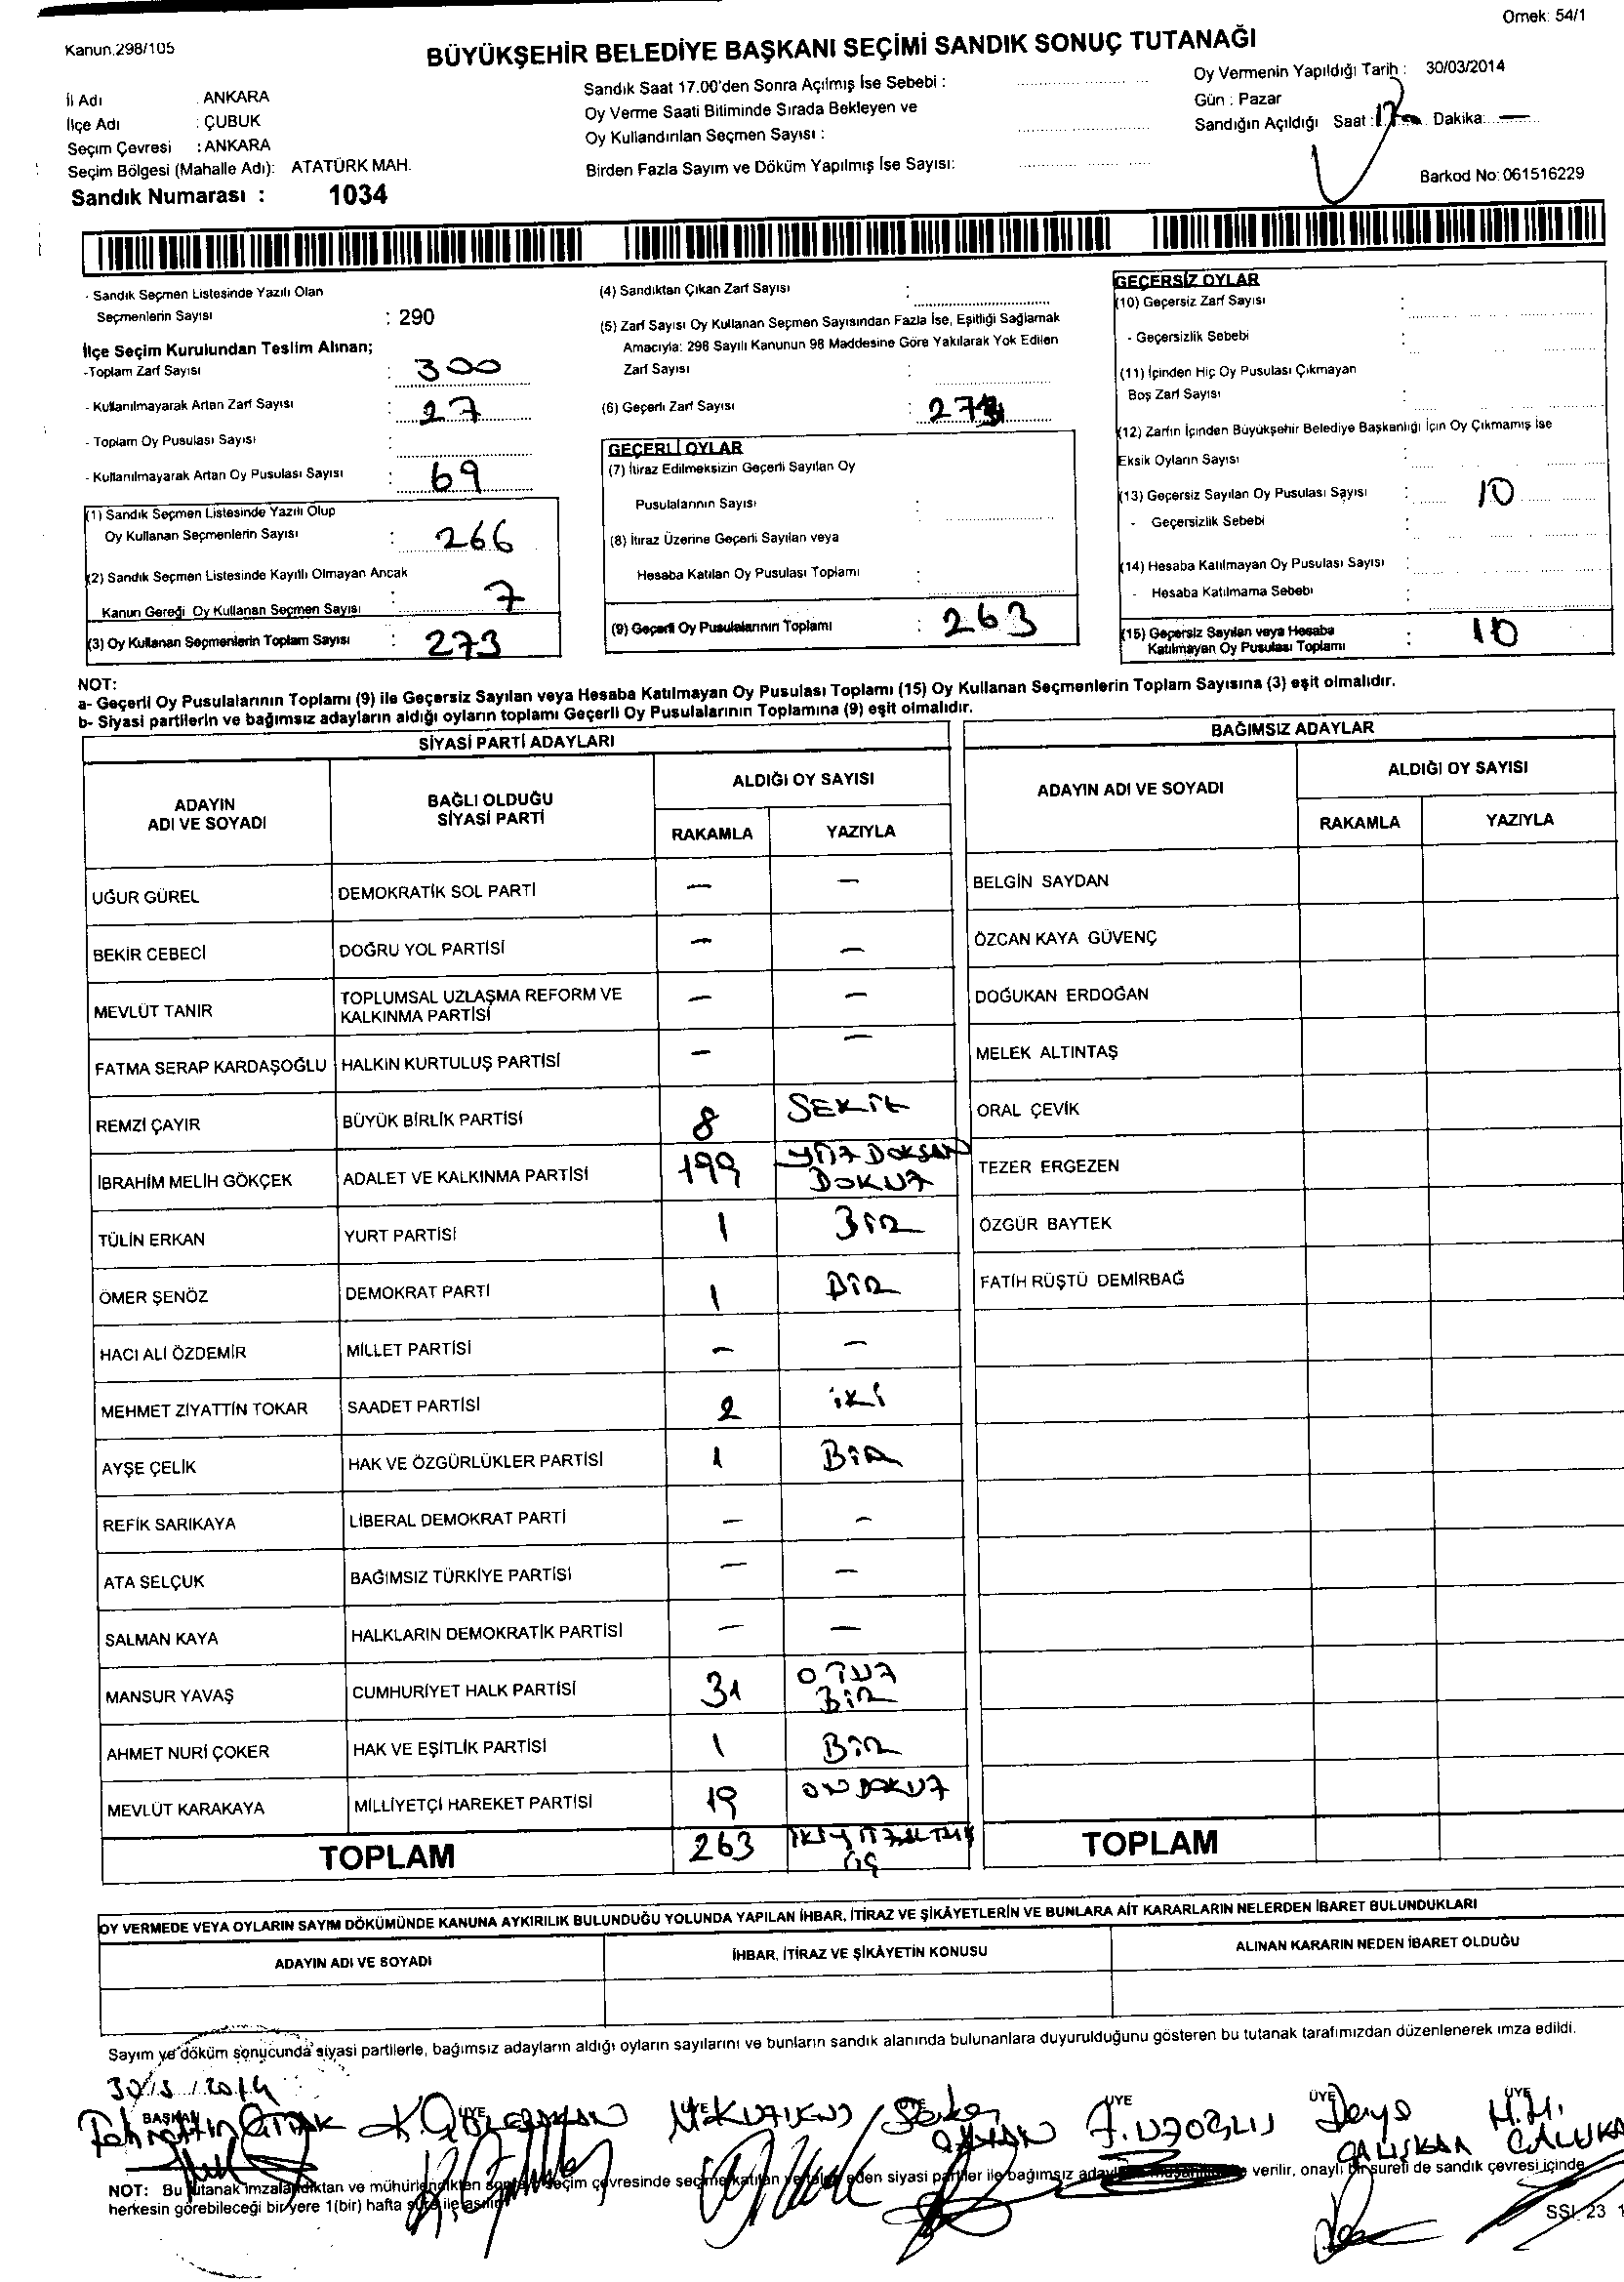 Örnek: 54/1
Kanun.298/105
BÜYÜKŞEHİR BELEDİYE BAŞKANI SEÇİMİ SANDIK SONUÇ TUTANAĞI
İl Adı : ANKARA
İlçe Adı : ÇUBUK
Seçim Çevresi : ANKARA
Seçim Bölgesi (Mahalle Adı): ATATÜRK MAH.
Sandık Numarası : 1034
Sandık Saat 17.00'den Sonra Açılmış İse Sebebi :
Oy Verme Saati Bitiminde Sırada Bekleyen ve
Oy Kullandırılan Seçmen Sayısı :
Birden Fazla Sayım ve Döküm Yapılmış İse Sayısı:
Oy Vermenin Yapıldığı Tarih : 30/03/2014
Gün : Pazar
Sandığın Açıldığı Saat : 17 Dakika: —
Barkod No: 061516229
- Sandık Seçmen Listesinde Yazılı Olan
Seçmenlerin Sayısı : 290
İlçe Seçim Kurulundan Teslim Alınan;
-Toplam Zarf Sayısı : 300
- Kullanılmayarak Artan Zarf Sayısı : 27
- Toplam Oy Pusulası Sayısı :
- Kullanılmayarak Artan Oy Pusulası Sayısı : 69
(1) Sandık Seçmen Listesinde Yazılı Olup
Oy Kullanan Seçmenlerin Sayısı : 266
(2) Sandık Seçmen Listesinde Kayıtlı Olmayan Ancak
Kanun Gereği Oy Kullanan Seçmen Sayısı : 7
(3) Oy Kullanan Seçmenlerin Toplam Sayısı : 273
(4) Sandıktan Çıkan Zarf Sayısı :
(5) Zarf Sayısı Oy Kullanan Seçmen Sayısından Fazla İse, Eşitliği Sağlamak
Amacıyla: 298 Sayılı Kanunun 98 Maddesine Göre Yakılarak Yok Edilen
Zarf Sayısı :
(6) Geçerli Zarf Sayısı : 273
GEÇERLİ OYLAR
(7) İtiraz Edilmeksizin Geçerli Sayılan Oy
Pusulalarının Sayısı :
(8) İtiraz Üzerine Geçerli Sayılan veya
Hesaba Katılan Oy Pusulası Toplamı :
(9) Geçerli Oy Pusulalarının Toplamı : 263
GEÇERSİZ OYLAR
(10) Geçersiz Zarf Sayısı :
- Geçersizlik Sebebi :
(11) İçinden Hiç Oy Pusulası Çıkmayan
Boş Zarf Sayısı :
(12) Zarfın İçinden Büyükşehir Belediye Başkanlığı İçin Oy Çıkmamış İse
Eksik Oyların Sayısı :
(13) Geçersiz Sayılan Oy Pusulası Sayısı : 10
- Geçersizlik Sebebi :
(14) Hesaba Katılmayan Oy Pusulası Sayısı :
- Hesaba Katılmama Sebebi :
(15) Geçersiz Sayılan veya Hesaba
Katılmayan Oy Pusulası Toplamı : 10
NOT:
a- Geçerli Oy Pusulalarının Toplamı (9) ile Geçersiz Sayılan veya Hesaba Katılmayan Oy Pusulası Toplamı (15) Oy Kullanan Seçmenlerin Toplam Sayısına (3) eşit olmalıdır.
b- Siyasi partilerin ve bağımsız adayların aldığı oyların toplamı Geçerli Oy Pusulalarının Toplamına (9) eşit olmalıdır.
SİYASİ PARTİ ADAYLARI
ADAYIN ADI VE SOYADI
BAĞLI OLDUĞU SİYASİ PARTİ
ALDIĞI OY SAYISI
RAKAMLA YAZIYLA
UĞUR GÜREL DEMOKRATİK SOL PARTİ — —
BEKİR CEBECİ DOĞRU YOL PARTİSİ — —
MEVLÜT TANIR TOPLUMSAL UZLAŞMA REFORM VE KALKINMA PARTİSİ — —
FATMA SERAP KARDAŞOĞLU HALKIN KURTULUŞ PARTİSİ — —
REMZİ ÇAYIR BÜYÜK BİRLİK PARTİSİ 8 SEKİZ
İBRAHİM MELİH GÖKÇEK ADALET VE KALKINMA PARTİSİ 199 YÜZ DOKSAN DOKUZ
TÜLİN ERKAN YURT PARTİSİ 1 BİR
ÖMER ŞENÖZ DEMOKRAT PARTİ 1 BİR
HACI ALİ ÖZDEMİR MİLLET PARTİSİ — —
MEHMET ZİYATTİN TOKAR SAADET PARTİSİ 2 İKİ
AYŞE ÇELİK HAK VE ÖZGÜRLÜKLER PARTİSİ 1 BİR
REFİK SARIKAYA LİBERAL DEMOKRAT PARTİ — —
ATA SELÇUK BAĞIMSIZ TÜRKİYE PARTİSİ — —
SALMAN KAYA HALKLARIN DEMOKRATİK PARTİSİ — —
MANSUR YAVAŞ CUMHURİYET HALK PARTİSİ 31 OTUZ BİR
AHMET NURİ ÇOKER HAK VE EŞİTLİK PARTİSİ 1 BİR
MEVLÜT KARAKAYA MİLLİYETÇİ HAREKET PARTİSİ 19 ON DOKUZ
TOPLAM 263 İKİYÜZALTMIŞ ÜÇ
BAĞIMSIZ ADAYLAR
ADAYIN ADI VE SOYADI
ALDIĞI OY SAYISI
RAKAMLA YAZIYLA
BELGİN SAYDAN
ÖZCAN KAYA GÜVENÇ
DOĞUKAN ERDOĞAN
MELEK ALTINTAŞ
ORAL ÇEVİK
TEZER ERGEZEN
ÖZGÜR BAYTEK
FATİH RÜŞTÜ DEMİRBAĞ
TOPLAM
OY VERMEDE VEYA OYLARIN SAYIM DÖKÜMÜNDE KANUNA AYKIRILIK BULUNDUĞU YOLUNDA YAPILAN İHBAR, İTİRAZ VE ŞİKÂYETLERİN VE BUNLARA AİT KARARLARIN NELERDEN İBARET BULUNDUKLARI
ADAYIN ADI VE SOYADI İHBAR, İTİRAZ VE ŞİKÂYETİN KONUSU ALINAN KARARIN NEDEN İBARET OLDUĞU
Sayım ve döküm sonucunda siyasi partilerle, bağımsız adayların aldığı oyların sayılarını ve bunların sandık alanında bulunanlara duyurulduğunu gösteren bu tutanak tarafımızdan düzenlenerek imza edildi.
30/3/2014
BAŞKAN ÜYE ÜYE ÜYE ÜYE ÜYE
Derya ÇALIŞKAN H.H.
NOT: Bu tutanak imzalandıktan ve mühürlendikten sonra seçim çevresinde seçime katılan ve talep eden siyasi partiler ile bağımsız verilir, onaylı bir sureti de sandık çevresi içinde
herkesin görebileceği bir yere 1(bir) hafta süre ile asılır.
SSI 23